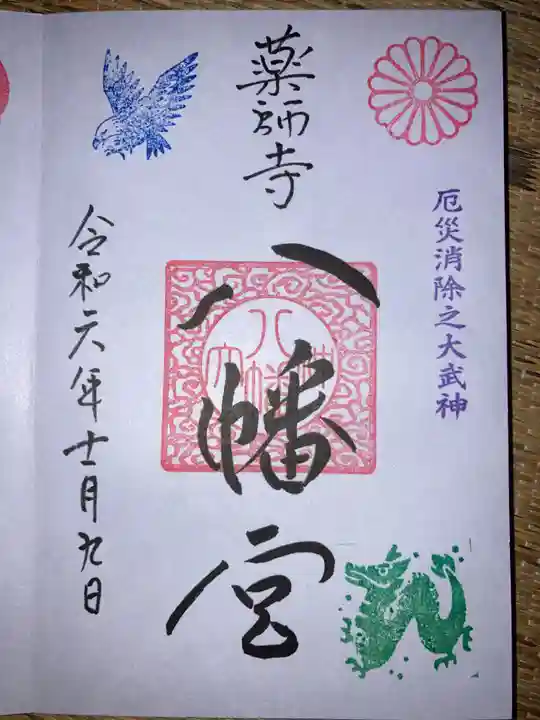 厄災消除之大武神
薬師寺
八幡宮
令和六年十一月九日